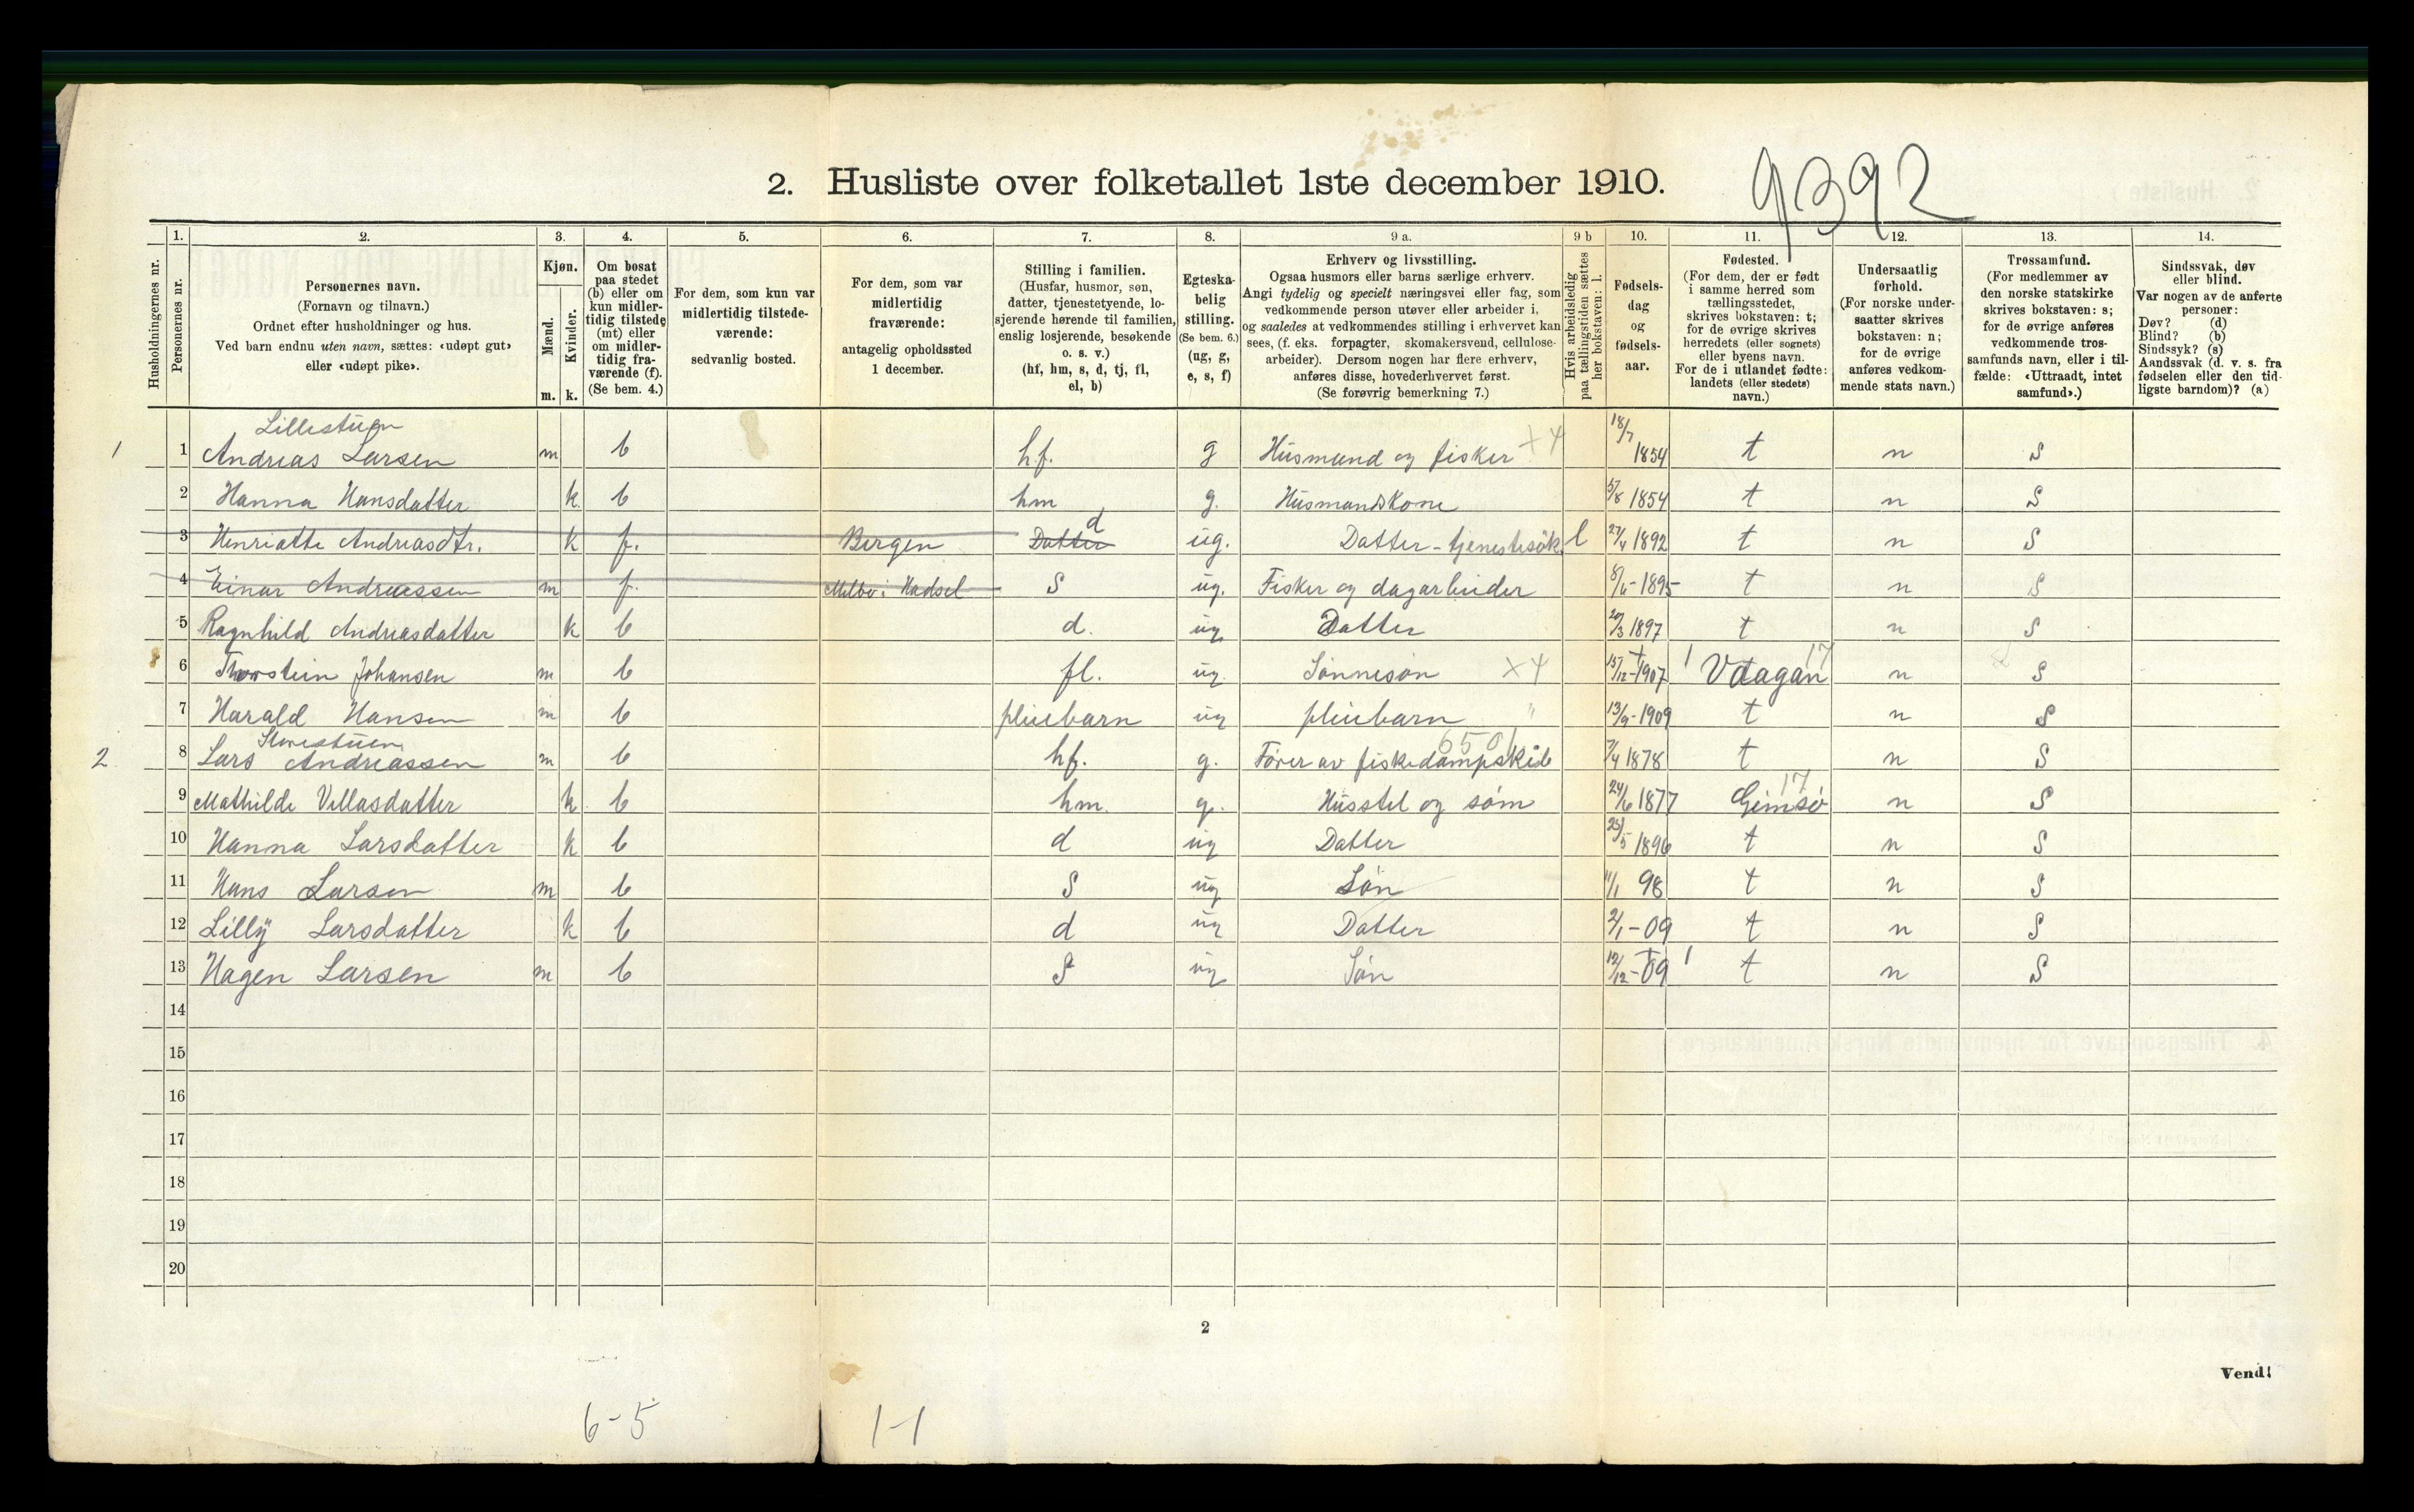 2. Husliste over folketallet 1ste december 1910.
9392
Husholdningernes nr.
1. Personernes nr.
2. Personernes navn. (Fornavn og tilnavn.) Ordnet efter husholdninger og hus. Ved barn endnu uten navn, sættes: «udøpt gut» eller «udøpt pike».
3. Kjøn. Mænd. m. Kvinder. k.
4. Om bosat paa stedet (b) eller om kun midler-tidig tilstede (mt) eller om midler-tidig fra-værende (f). (Se bem. 4.)
5. For dem, som kun var midlertidig tilstede-værende: sedvanlig bosted.
6. For dem, som var midlertidig fraværende: antagelig opholdssted 1 december.
7. Stilling i familien. (Husfar, husmor, søn, datter, tjenestetyende, lo-sjerende hørende til familien, enslig losjerende, besøkende o. s. v.) (hf, hm, s, d, tj, fl, el, b)
8. Egteska-belig stilling. (Se bem. 6.) (ug, g, e, s, f)
9 a. Erhverv og livsstilling. Ogsaa husmors eller barns særlige erhverv. Angi tydelig og specielt næringsvei eller fag, som vedkommende person utøver eller arbeider i, og saaledes at vedkommendes stilling i erhvervet kan sees, (f. eks. forpagter, skomakersvend, cellulose-arbeider). Dersom nogen har flere erhverv, anføres disse, hovederhvervet først. (Se forøvrig bemerkning 7.)
9 b Hvis arbeidsledig paa tællingstiden sættes her bokstaven: l.
10. Fødsels-dag og fødsels-aar.
11. Fødested. (For dem, der er født i samme herred som tællingsstedet, skrives bokstaven: t; for de øvrige skrives herredets (eller sognets) eller byens navn. For de i utlandet fødte: landets (eller stedets) navn.)
12. Undersaatlig forhold. (For norske under-saatter skrives bokstaven: n; for de øvrige anføres vedkom-mende stats navn.)
13. Trossamfund. (For medlemmer av den norske statskirke skrives bokstaven: s; for de øvrige anføres vedkommende tros-samfunds navn, eller i til-fælde: «Uttraadt, intet samfund».)
14. Sindssvak, døv eller blind. Var nogen av de anførte personer: Døv? (d) Blind? (b) Sindssyk? (s) Aandssvak (d. v. s. fra fødselen eller den tid-ligste barndom)? (a)
Lillestuen
1 1 Andreas Larsen m b hf. g Husmand og fisker X4 18/7 1854 t n S
2 Hanna Hansdatter k b hm g. Husmandskone 5/8 1854 t n S
3 Henriatte Andreasdtr. k f. Bergen Datter d ug. Datter - tjenestesøk l 27/4 1892 t n S
4 Einar Andreassen m f. Melbo i Hadsel S ug. Fisker og dagarbeider 8/6 - 1895 t n S
5 Ragnhild Andreasdatter k b d. ug Datter 20/3 1897 t n S
6 Thorstein Johansen m b fl. ug. Sønnesøn X4 15/12 - 1907 1 Vaagan 17 n S
7 Harald Hansen m b pleiebarn ug pleiebarn " 13/9 - 1909 t n S
Storestuen 6501
2. 8 Lars Andreassen m b hf. g. Fører av fiskedampskib 7/4 1878 t n S
9 Mathilde Villasdatter k b hm. g. Husstel og søm 24/6 1877 Gimsø 17 n S
10 Hanna Larsdatter k b d ug Datter 25/5 1896 t n S
11 Hans Larsen m b S ug Søn 11/1 98 t n S
12 Lilly Larsdatter k b d ug Datter 2/1 - 09 t n S
13 Hagen Larsen m b S ug Søn 12/12 - 09 1 t n S
14
15
16
17
18
19
20
2
Vend!
6-5 1-1